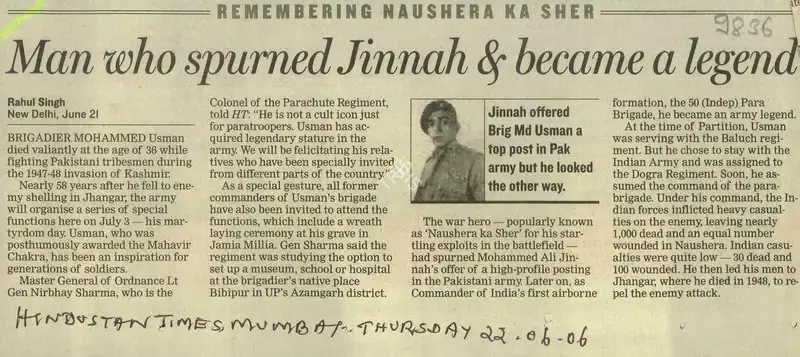 REMEMBERING NAUSHERA KA SHER
9836
Man who spurned Jinnah & became a legend
Rahul Singh
New Delhi, June 21
BRIGADIER MOHAMMED Usman
died valiantly at the age of 36 while
fighting Pakistani tribesmen during
the 1947-48 invasion of Kashmir.
Nearly 58 years after he fell to ene-
my shelling in Jhangar, the army
will organise a series of special
functions here on July 3 — his mar-
tyrdom day. Usman, who was
posthumously awarded the Mahavir
Chakra, has been an inspiration for
generations of soldiers.
Master General of Ordnance Lt
Gen Nirbhay Sharma, who is the
Colonel of the Parachute Regiment,
told HT: “He is not a cult icon just
for paratroopers. Usman has ac-
quired legendary stature in the
army. We will be felicitating his rela-
tives who have been specially invited
from different parts of the country”
As a special gesture, all former
commanders of Usman's brigade
have also been invited to attend the
functions, which include a wreath
laying ceremony at his grave in
Jamia Millia. Gen Sharma said the
regiment was studying the option to
set up a museum, school or hospital
at the brigadier's native place
Bibipur in UP's Azamgarh district.
Jinnah offered
Brig Md Usman a
top post in Pak
army but he looked
the other way.
The war hero — popularly known
as ‘Naushera ka Sher’ for his star-
tling exploits in the battlefield —
had spurned Mohammed Ali Jin-
nah's offer of a high-profile posting
in the Pakistani army. Later on, as
Commander of India's first airborne
formation, the 50 (Indep) Para
Brigade, he became an army legend.
At the time of Partition, Usman
was serving with the Baluch regi-
ment. But he chose to stay with the
Indian Army and was assigned to
the Dogra Regiment. Soon, he as-
sumed the command of the para-
brigade. Under his command, the In-
dian forces inflicted heavy casual-
ties on the enemy, leaving nearly
1,000 dead and an equal number
wounded in Naushera. Indian casu-
alties were quite low — 30 dead and
100 wounded. He then led his men to
Jhangar, where he died in 1948, to re-
pel the enemy attack.
HINDUSTAN TIMES, MUMBAI. THURSDAY 22.06.06